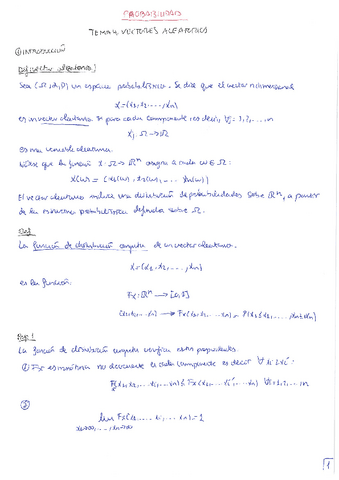 PROBABILIDAD
TEMA 4: VECTORES ALEATORIOS
① INTRODUCCIÓN
Def (vector aleatorio)
Sea (Ω, A, P) un espacio probabilístico. Se dice que el vector n-dimensional
X=(X₁, X₂, ..., Xn)
es un vector aleatorio si para cada componente, es decir, ∀j=1,2,...,n
Xj: Ω→Ω
es una variable aleatoria.
Nótese que la función X: Ω→ℝⁿ asigna a cada ω∈Ω:
X(ω) = (X₁(ω), X₂(ω), ... Xn(ω))
El vector aleatorio induce una distribución de probabilidades sobre ℝⁿ, a partir
de la estructura probabilística definida sobre Ω.
Def
La función de distribución conjunta de un vector aleatorio
X=(X₁, X₂, ..., Xn)
es la función:
Fx: ℝⁿ → [0,1]
(x₁, x₂, ... xn) → Fx(x₁, x₂, ... xn) = P(X₁≤x₁, ..., Xn≤xn)
Prop 1
La función de distribución conjunta verifica estas propiedades.
① Fx es monótona no decreciente en cada componente es decir ∀
Fx(x₁, ... xi, ... xn) ≤ Fx(x₁, ... xi', ... xn) ∀i=1,2,...,n
②
lim Fx(x₁, ... xi, ... xn)=1
x₁→∞, ..., xn→∞
1